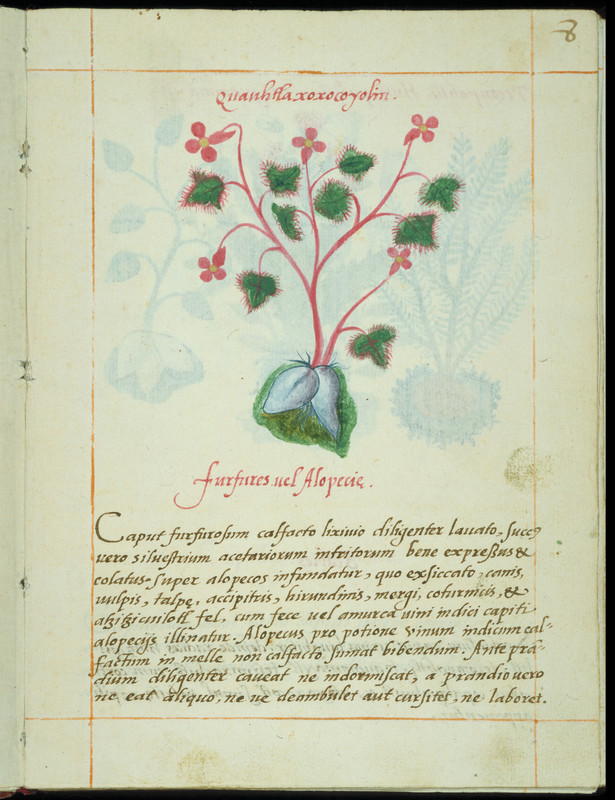 8
Quauhtlaxoxocoyolin.
furfures uel Alopecię.
Caput furfurosum calfacto lixiuio diligenter lauato, succꝰ
uero siluestrium acetariorum intritorum bene expreßus &
colatus super alopecos infundatur, quo exsiccato, canis,
uulpis, talpę, accipitris, hirundinis, mergi, coturnicis, &
atzitzicuilotl fel, cum fece uel amurca uini indici capiti
alopecijs illinatur. Alopecus pro potione uinum indicum cal-
factum in melle non calfacto sumat bibendum. Ante pran-
dium diligenter caueat ne indormiscat, a prandio uero
ne eat aliquo, ne ne deambulet aut cursitet, ne laboret.